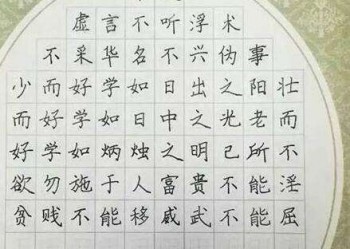 虚言不听浮术
不采华名不兴伪事
少而好学如日出之阳壮
而好学如日中之光老而
好学如炳烛之明己所不
欲勿施于人富贵不能淫
贫贱不能移威武不能屈